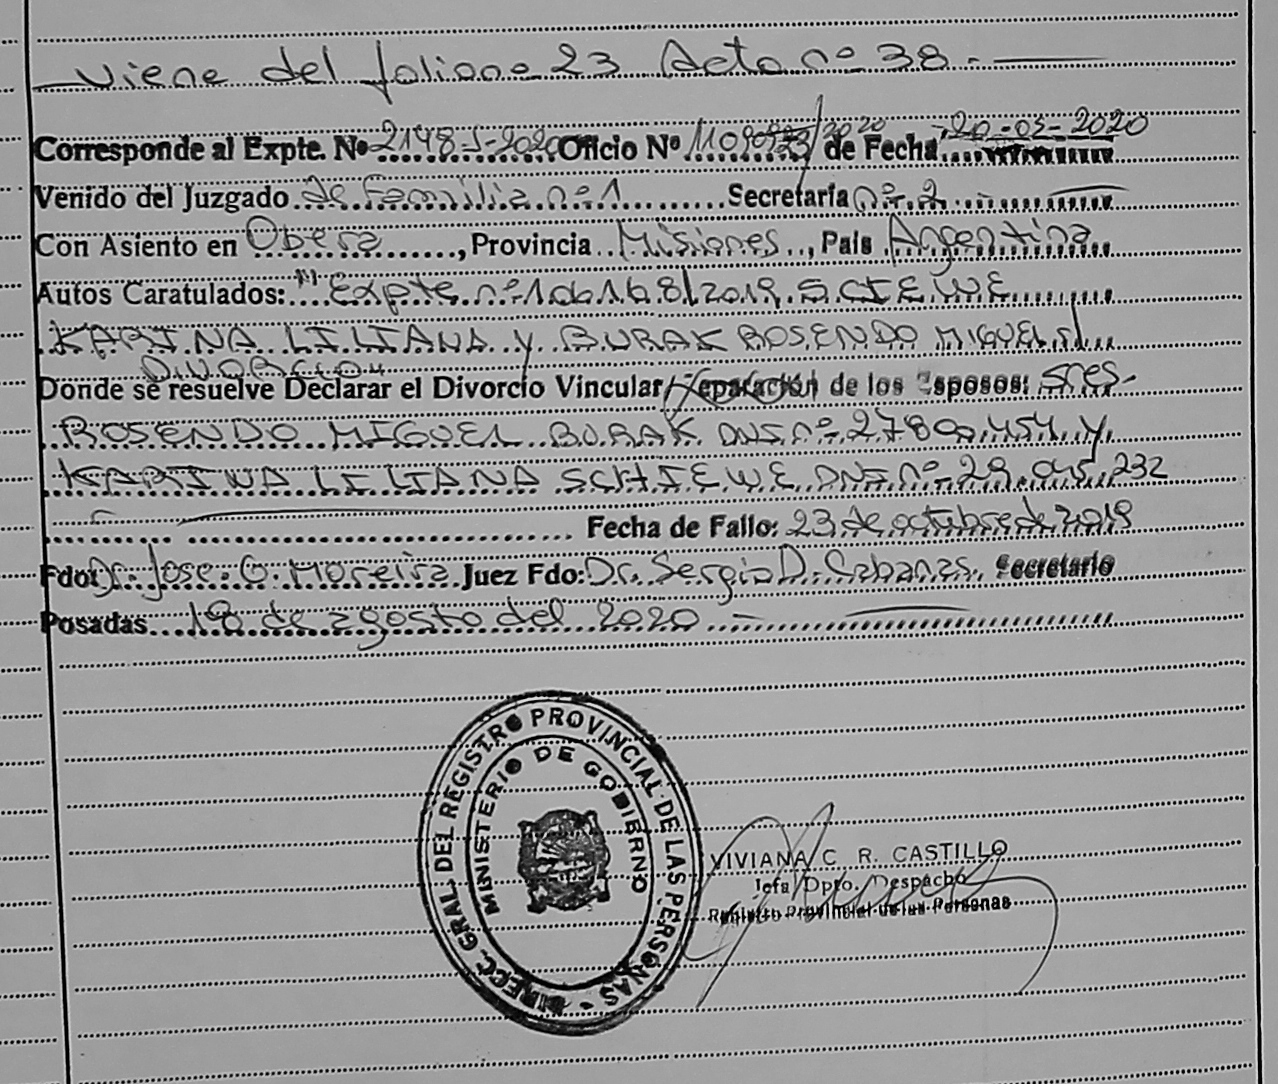 Viene del folio nº 23 Acta nº 38.-
Corresponde al Expte. Nº 2148-J-2020 Oficio Nº /2020 de Fecha 20-05-2020
Venido del Juzgado de Familia nº 1 Secretaría nº 2
Con Asiento en Obera, Provincia Misiones, País Argentina
Autos Caratulados: "Expte nº 106168/2019 SCIEWE
KARINA LILIANA y BURAK ROSENDO MIGUEL s/
DIVORCIO"
Donde se resuelve Declarar el Divorcio Vincular/Separación de los Esposos: Sres-
ROSENDO MIGUEL BURAK DNI nº y
KARINA LILIANA SCHIEWE DNI nº 29.045.232
Fecha de Fallo: 23 de octubre de 2019
Fdo: Dr. Jose G. Moreira Juez Fdo: Dr. Sergio D. Cabanas Secretario
Posadas 18 de agosto del 2020 -
DIRECC. GRAL. DEL REGISTRO PROVINCIAL DE LAS PERSONAS -
MINISTERIO DE GOBIERNO
VIVIANA C. R. CASTILLO
Jefa Dpto. Despacho
Registro Provincial de las Personas